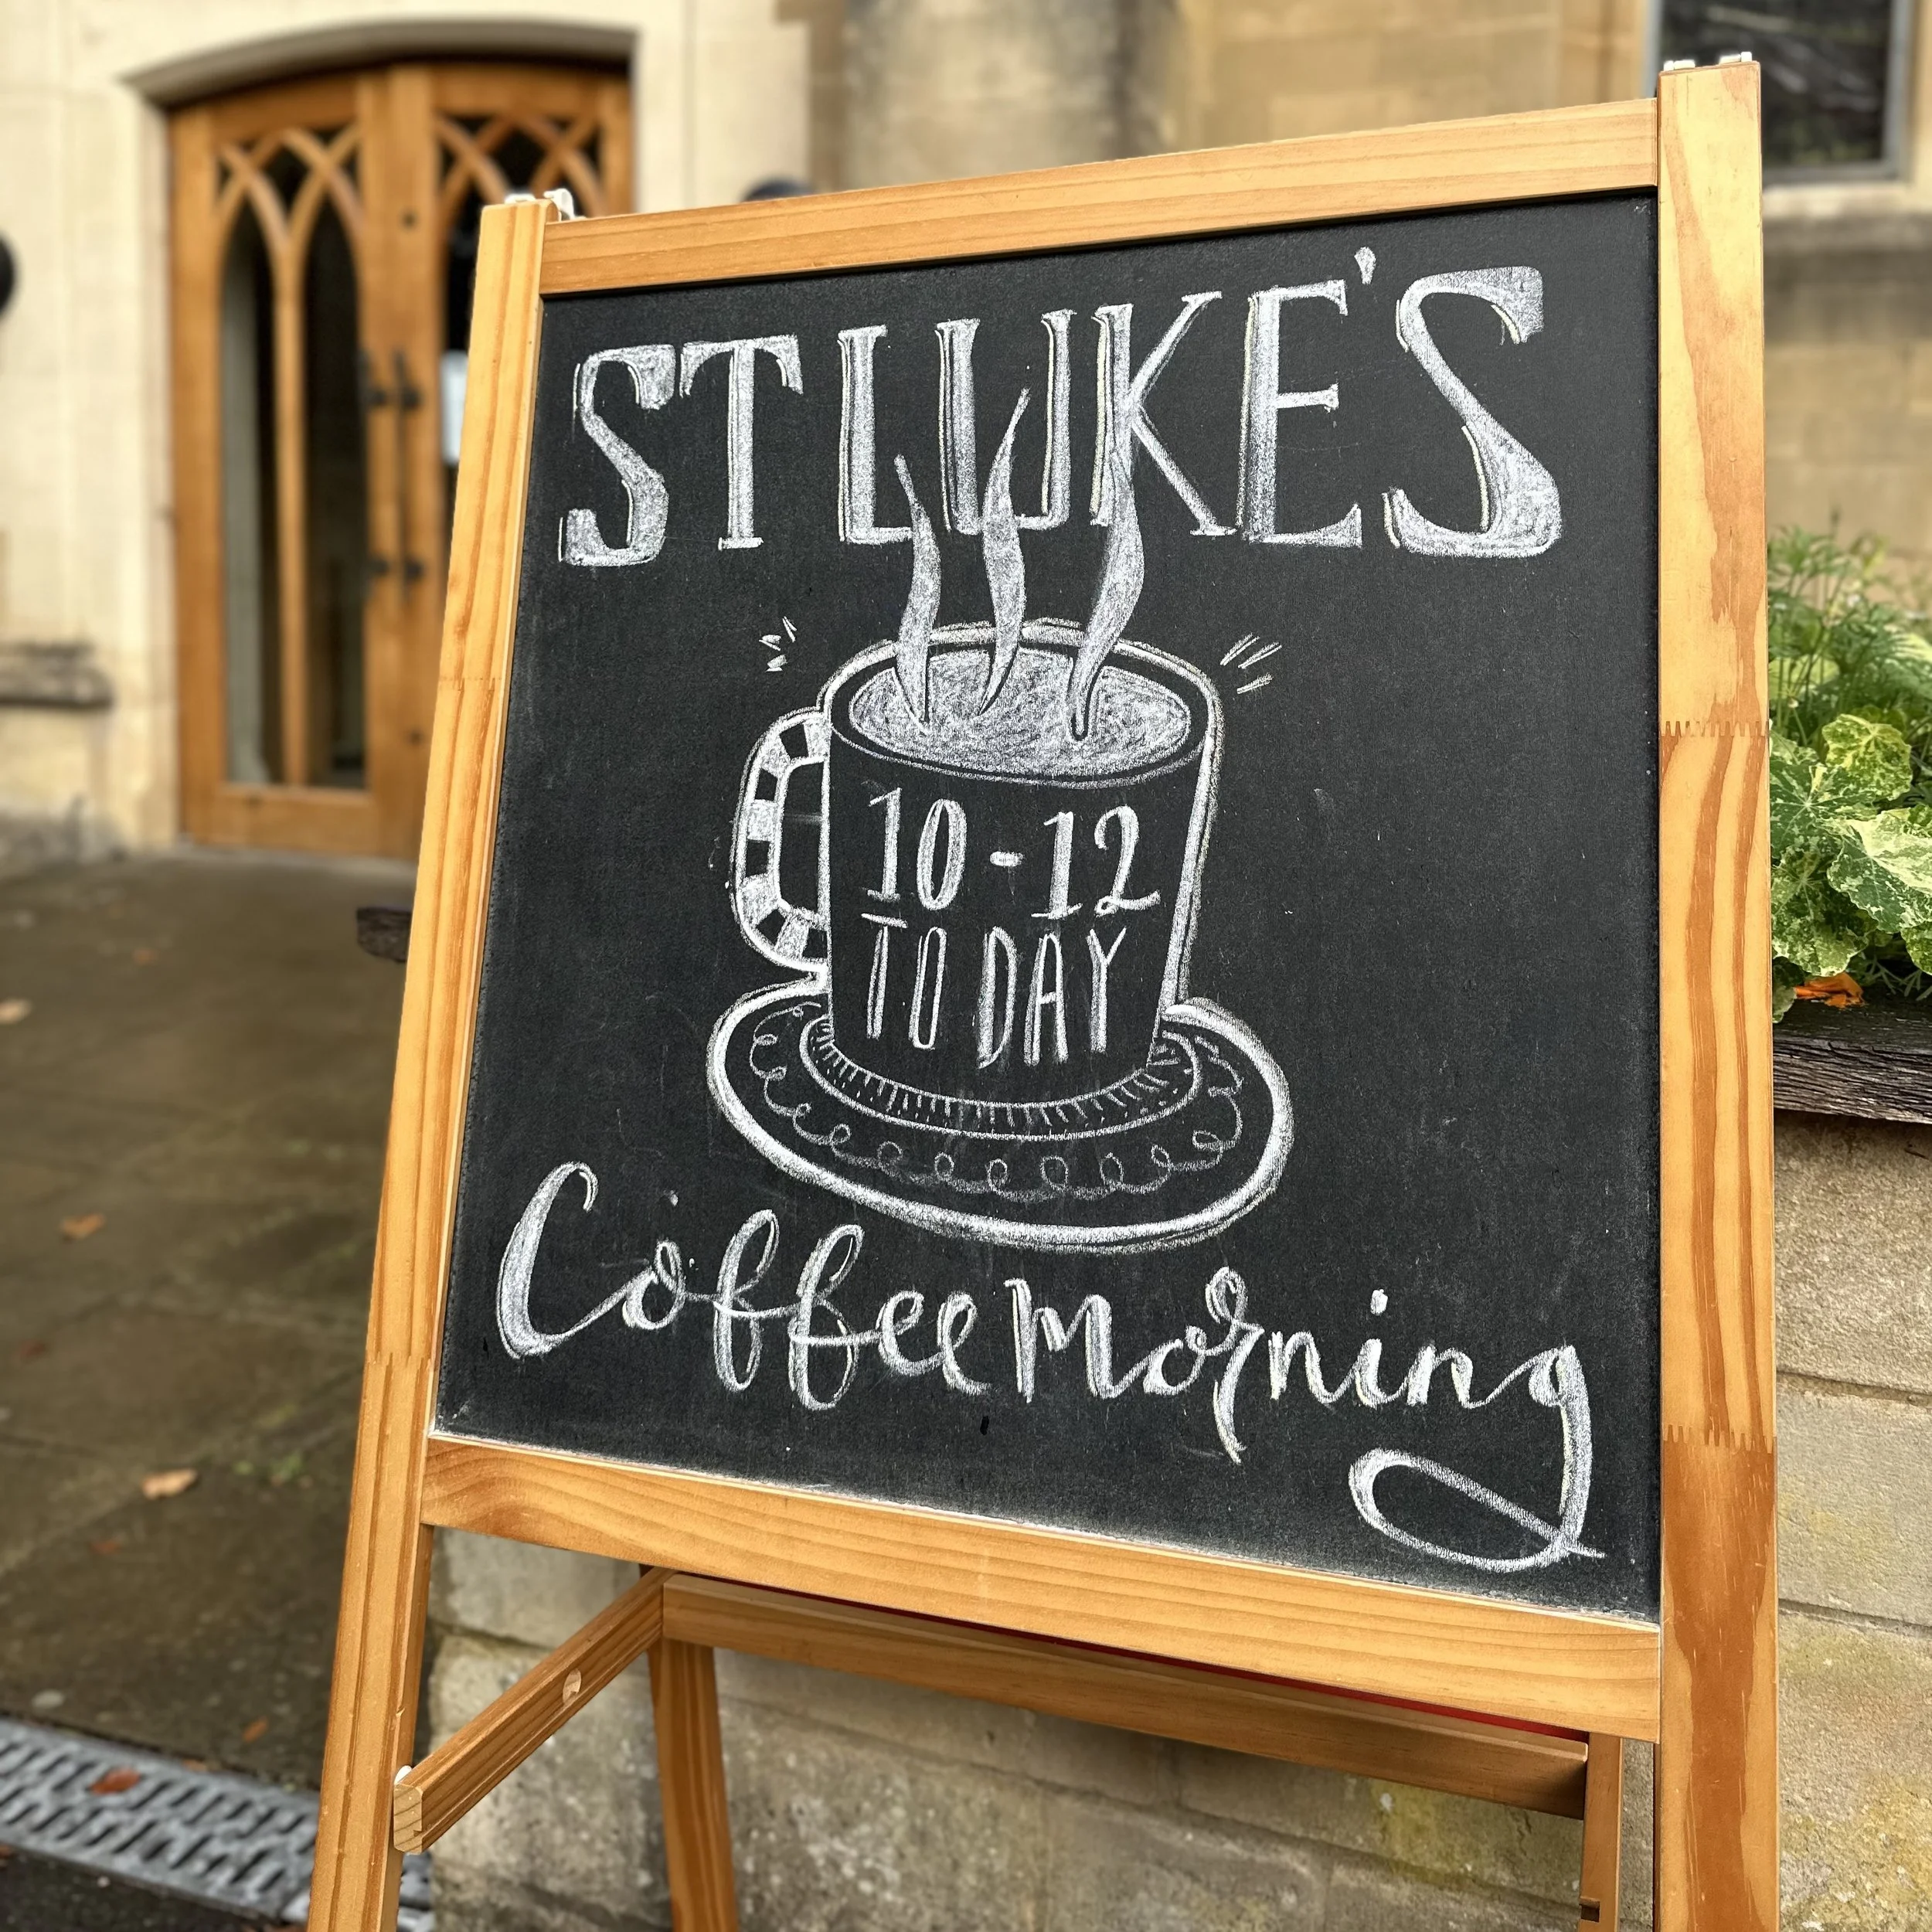 ST LUKE'S
10-12
TODAY
Coffee Morning